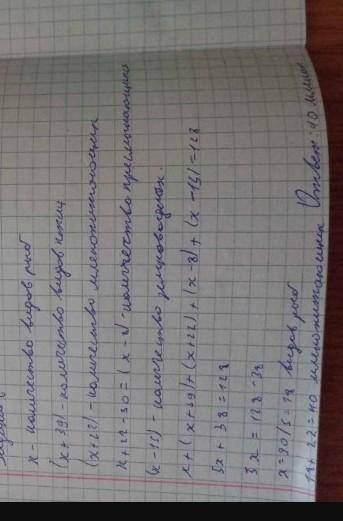 x - количество видов рыб
(x+39) - количество видов птиц
(x+22) - количество млекопитающих
x+22-30 = (x-8) - количество пресмыкающихся
(x-15) - количество земноводных.
x+(x+39)+(x+22)+(x-8)+(x-15)=128
5x+38=128
5x=128-38
x=90/5=18 видов рыб
18+22=40 млекопитающих Ответ: 40 млекоп